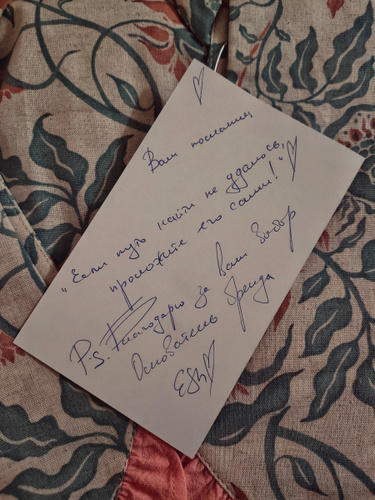 Вам послание
"Если путь найти не удалось,
проложите его сами!"
P.S. Благодарю за Ваш выбор
Основатель бренда